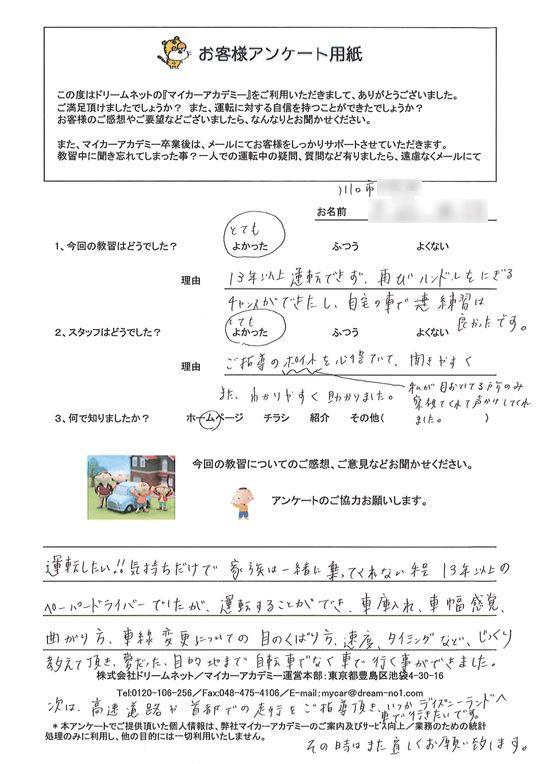 お客様アンケート用紙
この度はドリームネットの『マイカーアカデミー』をご利用いただきまして、ありがとうございました。
ご満足頂けましたでしょうか？ また、運転に対する自信を持つことができたでしょうか？
お客様のご感想やご要望などございましたら、なんなりとお聞かせください。
また、マイカーアカデミー卒業後は、メールにてお客様をしっかりサポートさせていただきます。
教習中に聞き忘れてしまった事？一人での運転中の疑問、質問など有りましたら、遠慮なくメールにて
川口市
お名前
とても
1、今回の教習はどうでした？ よかった ふつう よくない
理由 13年以上運転できず、再びハンドルをにぎる
チャンスができたし、自宅の車で練習は
良かったです。
とても
2、スタッフはどうでした？ よかった ふつう よくない
理由 ご指導のポイントを心得ていて、聞きやすく
また、わかりやすく助かりました。
私が目おいてる所のみ
察知してくれて声かけしてくれ
ました。
3、何で知りましたか？ ホームページ チラシ 紹介 その他( )
今回の教習についてのご感想、ご意見などお聞かせください。
アンケートのご協力お願いします。
運転したい!!気持ちだけで 家族は一緒に乗ってくれない程 13年以上の
ペーパードライバーでしたが、運転することができ、車庫入れ、車幅感覚、
曲がり方、車線変更についての目のくばり方、速度、タイミングなど、じっくり
教えて頂き、夢だった、目的地まで自転車でなく車で行く事ができました。
株式会社ドリームネット／マイカーアカデミー運営本部：東京都豊島区池袋4-30-16
Tel:0120-106-256／Fax:048-475-4106／E-mail:mycar@dream-no1.com
次は、高速道路や首都での走行をご指導頂き、いつかディズニーランドへ
車で行きたいです。
＊本アンケートでご提供頂いた個人情報は、弊社マイカーアカデミーのご案内及びサービス向上／業務のための統計
処理のみに利用し、他の目的には一切利用いたしません。
その時はまた宜しくお願い致します。